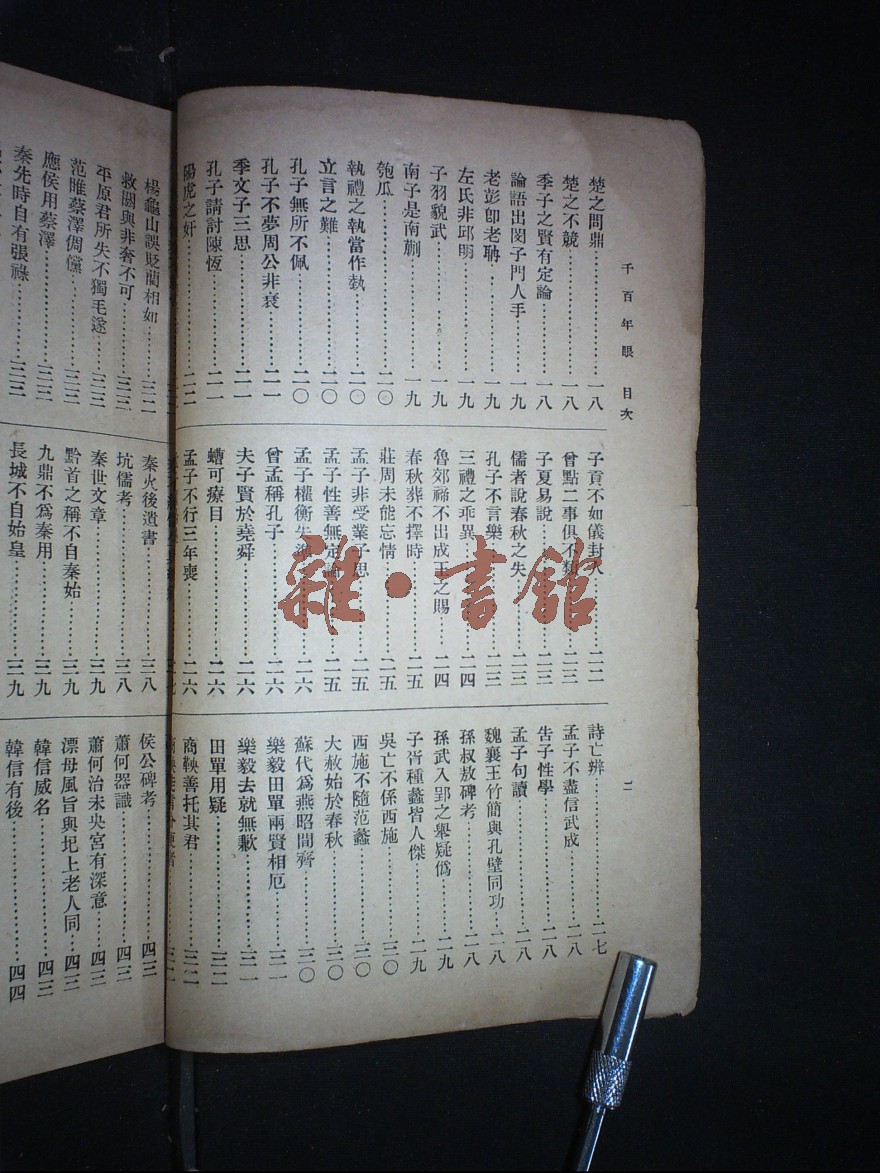 千百年眼 目次
二
楚之問鼎……………一八
楚之不競……………一八
季子之賢有定論……………一八
論語出閔子門人手……………一九
老彭卽老聃……………一九
左氏非邱明……………一九
子羽貌武……………一九
南子是南蒯……………一九
匏瓜……………二〇
執禮之執當作埶……………二〇
立言之難……………二〇
孔子無所不佩……………二〇
孔子不夢周公非衰……………二一
季文子三思……………二一
孔子請討陳恆……………二一
陽虎之奸……………二二
子貢不如儀封人……………二二
曾點二事俱不類……………二三
子夏易說……………二三
儒者說春秋之失……………二三
孔子不言樂……………二三
三禮之乖異……………二四
魯郊禘不出成王之賜……………二四
春秋葬不擇時……………二五
莊周未能忘情……………二五
孟子非受業子思……………二五
孟子性善無定論……………二五
孟子權衡失準……………二六
曾孟稱孔子……………二六
夫子賢於堯舜……………二六
螬可療目……………二六
孟子不行三年喪……………二六
詩亡辨……………二七
孟子不盡信武成……………二八
告子性學……………二八
孟子句讀……………二八
魏襄王竹簡與孔壁同功……………二八
孫叔敖碑考……………二八
孫武入郢之舉疑僞……………二九
子胥種蠡皆人傑……………二九
吳亡不係西施……………三〇
西施不隨范蠡……………三〇
大赦始於春秋……………三〇
蘇代爲燕昭間齊……………三〇
樂毅田單兩賢相厄……………三一
樂毅去就無歉……………三一
田單用疑……………三二
商鞅善托其君……………三二
楊龜山誤貶藺相如……………三二
救閼與非奢不可……………三三
平原君所失不獨毛遂……………三三
范睢蔡澤倜儻……………三三
應侯用蔡澤……………三三
秦先時自有張祿……………三三
秦火後遺書……………三八
坑儒考……………三八
秦世文章……………三九
黔首之稱不自秦始……………三九
九鼎不爲秦用……………三九
長城不自始皇……………三九
侯公碑考……………四三
蕭何器識……………四三
蕭何治未央宮有深意……………四三
漂母風旨與圯上老人同……………四三
韓信威名……………四三
韓信有後……………四四
雜·書館